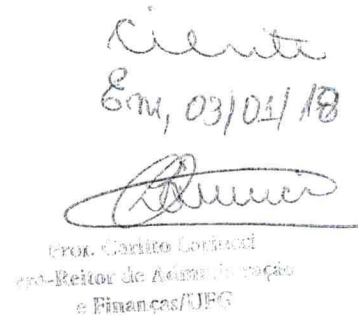 Ciente
Em, 03/01/18
Prof. Carlito Lariucci
Pró-Reitor de Administração
e Finanças/UFG